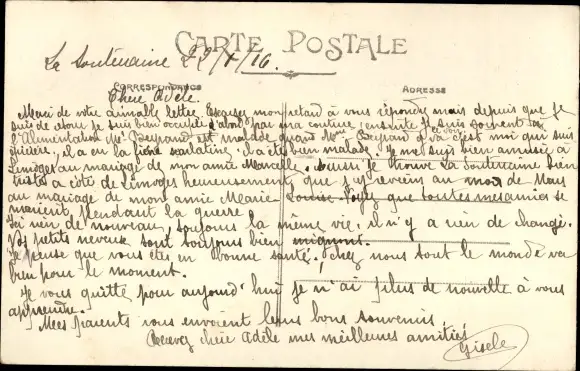 CARTE POSTALE
La Souterraine 22/1/16.
CORRESPONDANCE
ADRESSE
Chère Adèle.
Merci de votre aimable lettre. Excusez mon retard à vous répondre mais depuis que je
suis de retour je suis bien occupée d'abord par ma couture ensuite je suis souvent à
l'Alimentation Mr Peyrand est malade quand Mme Peyrand va c'est moi qui suis
épicière, il a eu la fièvre scarlatine, il a été bien malade. Je me suis bien amusée à
Limoges au mariage de mon amie Marcelle. Aussi je trouve La Souterraine bien
triste à côté de Limoges heureusement que j'y reviens au mois de Mars
au mariage de mon amie Marie Louise. Voyez que toutes mes amies se
marient pendant la guerre!
Ici rien de nouveau, toujours la même vie, il n'y a rien de changé.
Vos petits neveux sont toujours bien mignons.
Je pense que vous êtes en bonne santé, chez nous tout le monde va
bien pour le moment.
Je vous quitte pour aujourd'hui je n'ai plus de nouvelle à vous
apprendre.
Mes parents vous envoient leurs bons souvenirs.
Recevez chère Adèle mes meilleures amitiés
Gisèle